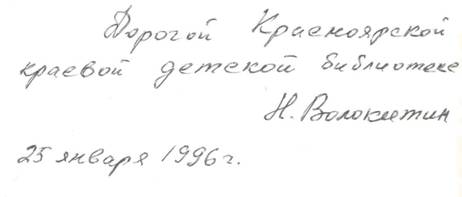 Дорогой Красноярской
краевой детской библиотеке
Н. Волокитин
25 января 1996 г.